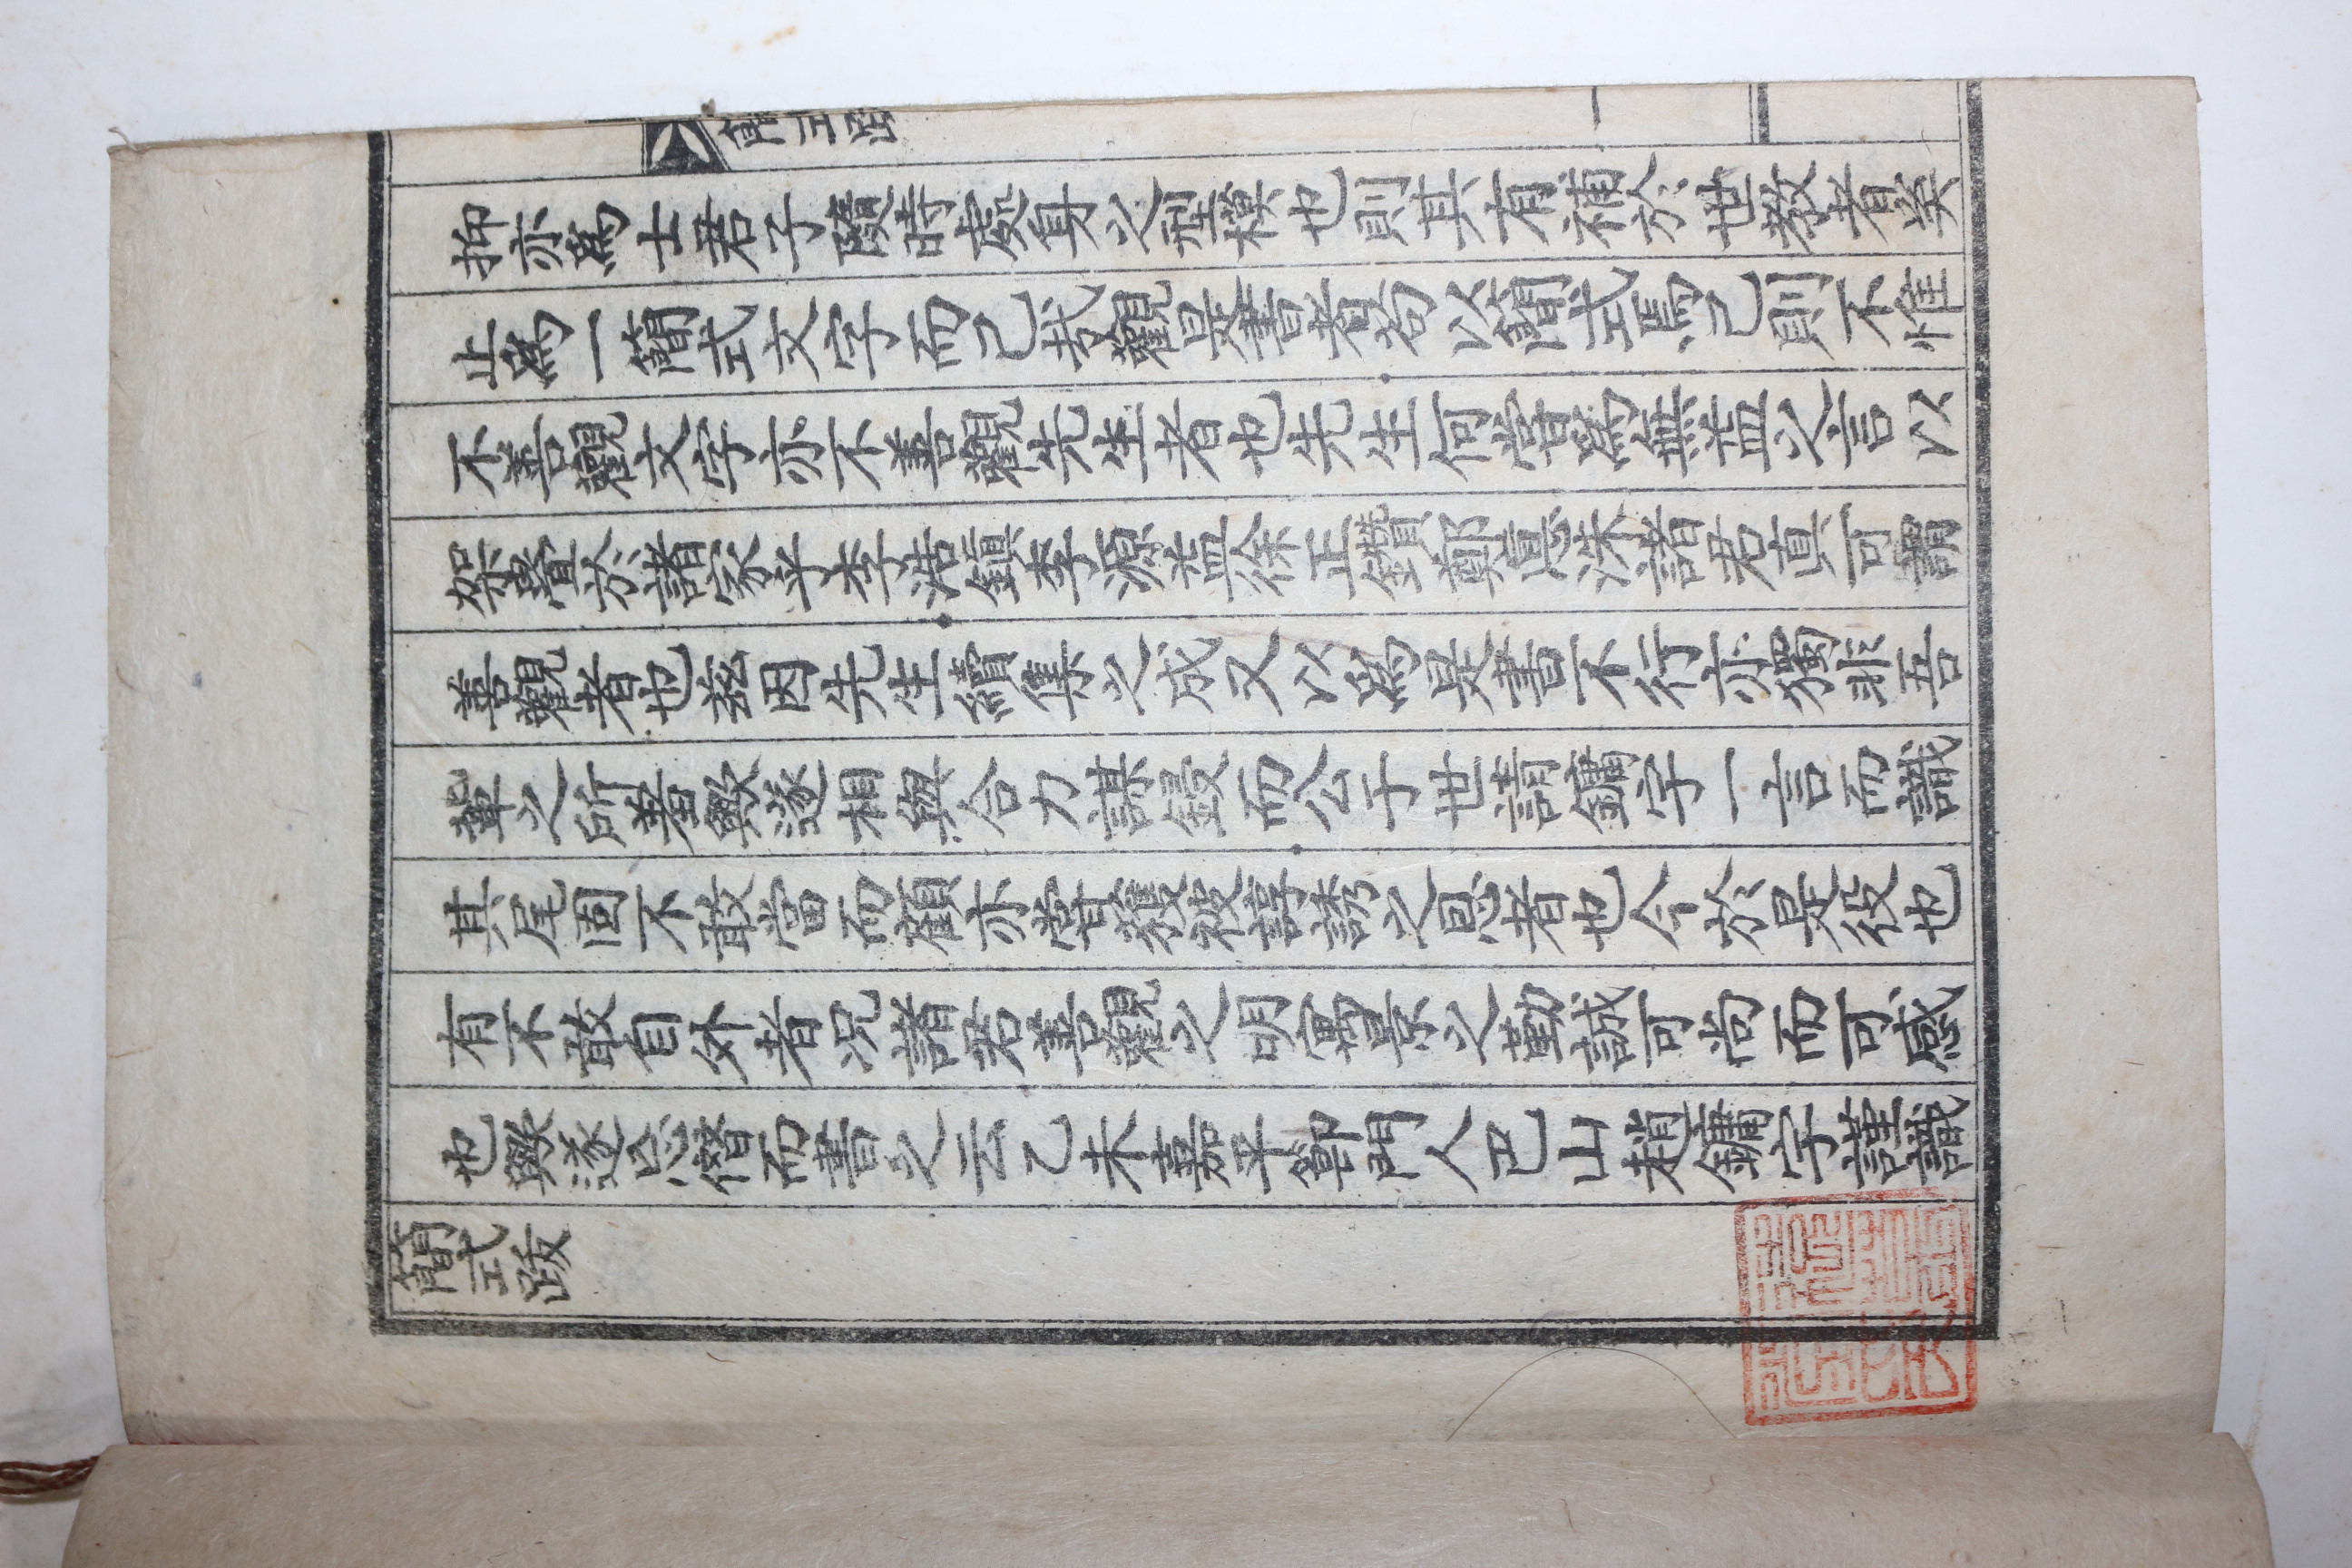 簡式跋
一
抑亦爲士君子隨時處身之程模也則其有補於世敎者矣
止爲一簡式文字而已哉觀是書者苟以簡式焉已則不惟
不善觀文字亦不善觀先生者也先生何嘗爲無益之言以
架疊於諸家乎李浩鎭李源益徐正鑽鄭悳洙諸君眞可謂
善觀者也玆因先生續集之成又以爲是書不行亦獨非吾
輩之所羞歟遂相與合力謀鋟而公于世請鏞字一言而識
其尾固不敢當而顧亦嘗獲被諄誘之恩者也今於是役也
有不敢自外者况諸君善觀之明寓景之勤誠可尙而可感
也歟遂忘僭而書之云乙未嘉平節門人巴山趙鏞字謹識
簡式跋